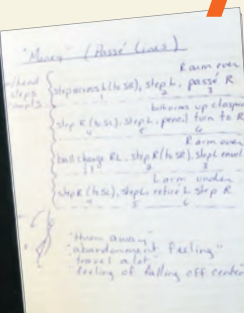 "Money" (Passé Lines)
R arm over
w/head
steps
step across L (to SL), step L, passé R
1 2 3
both arms up clasping
step R (to SL), step L, pencil turn to R
4 5 6
R arm over
ball change RL, step R (to SR), step L
1 2 3
L arm under
step R (to SL), step L retiré L step R
4 5 6
"thrown away"
"abandonment feeling"
travel a lot
"feeling of falling off center